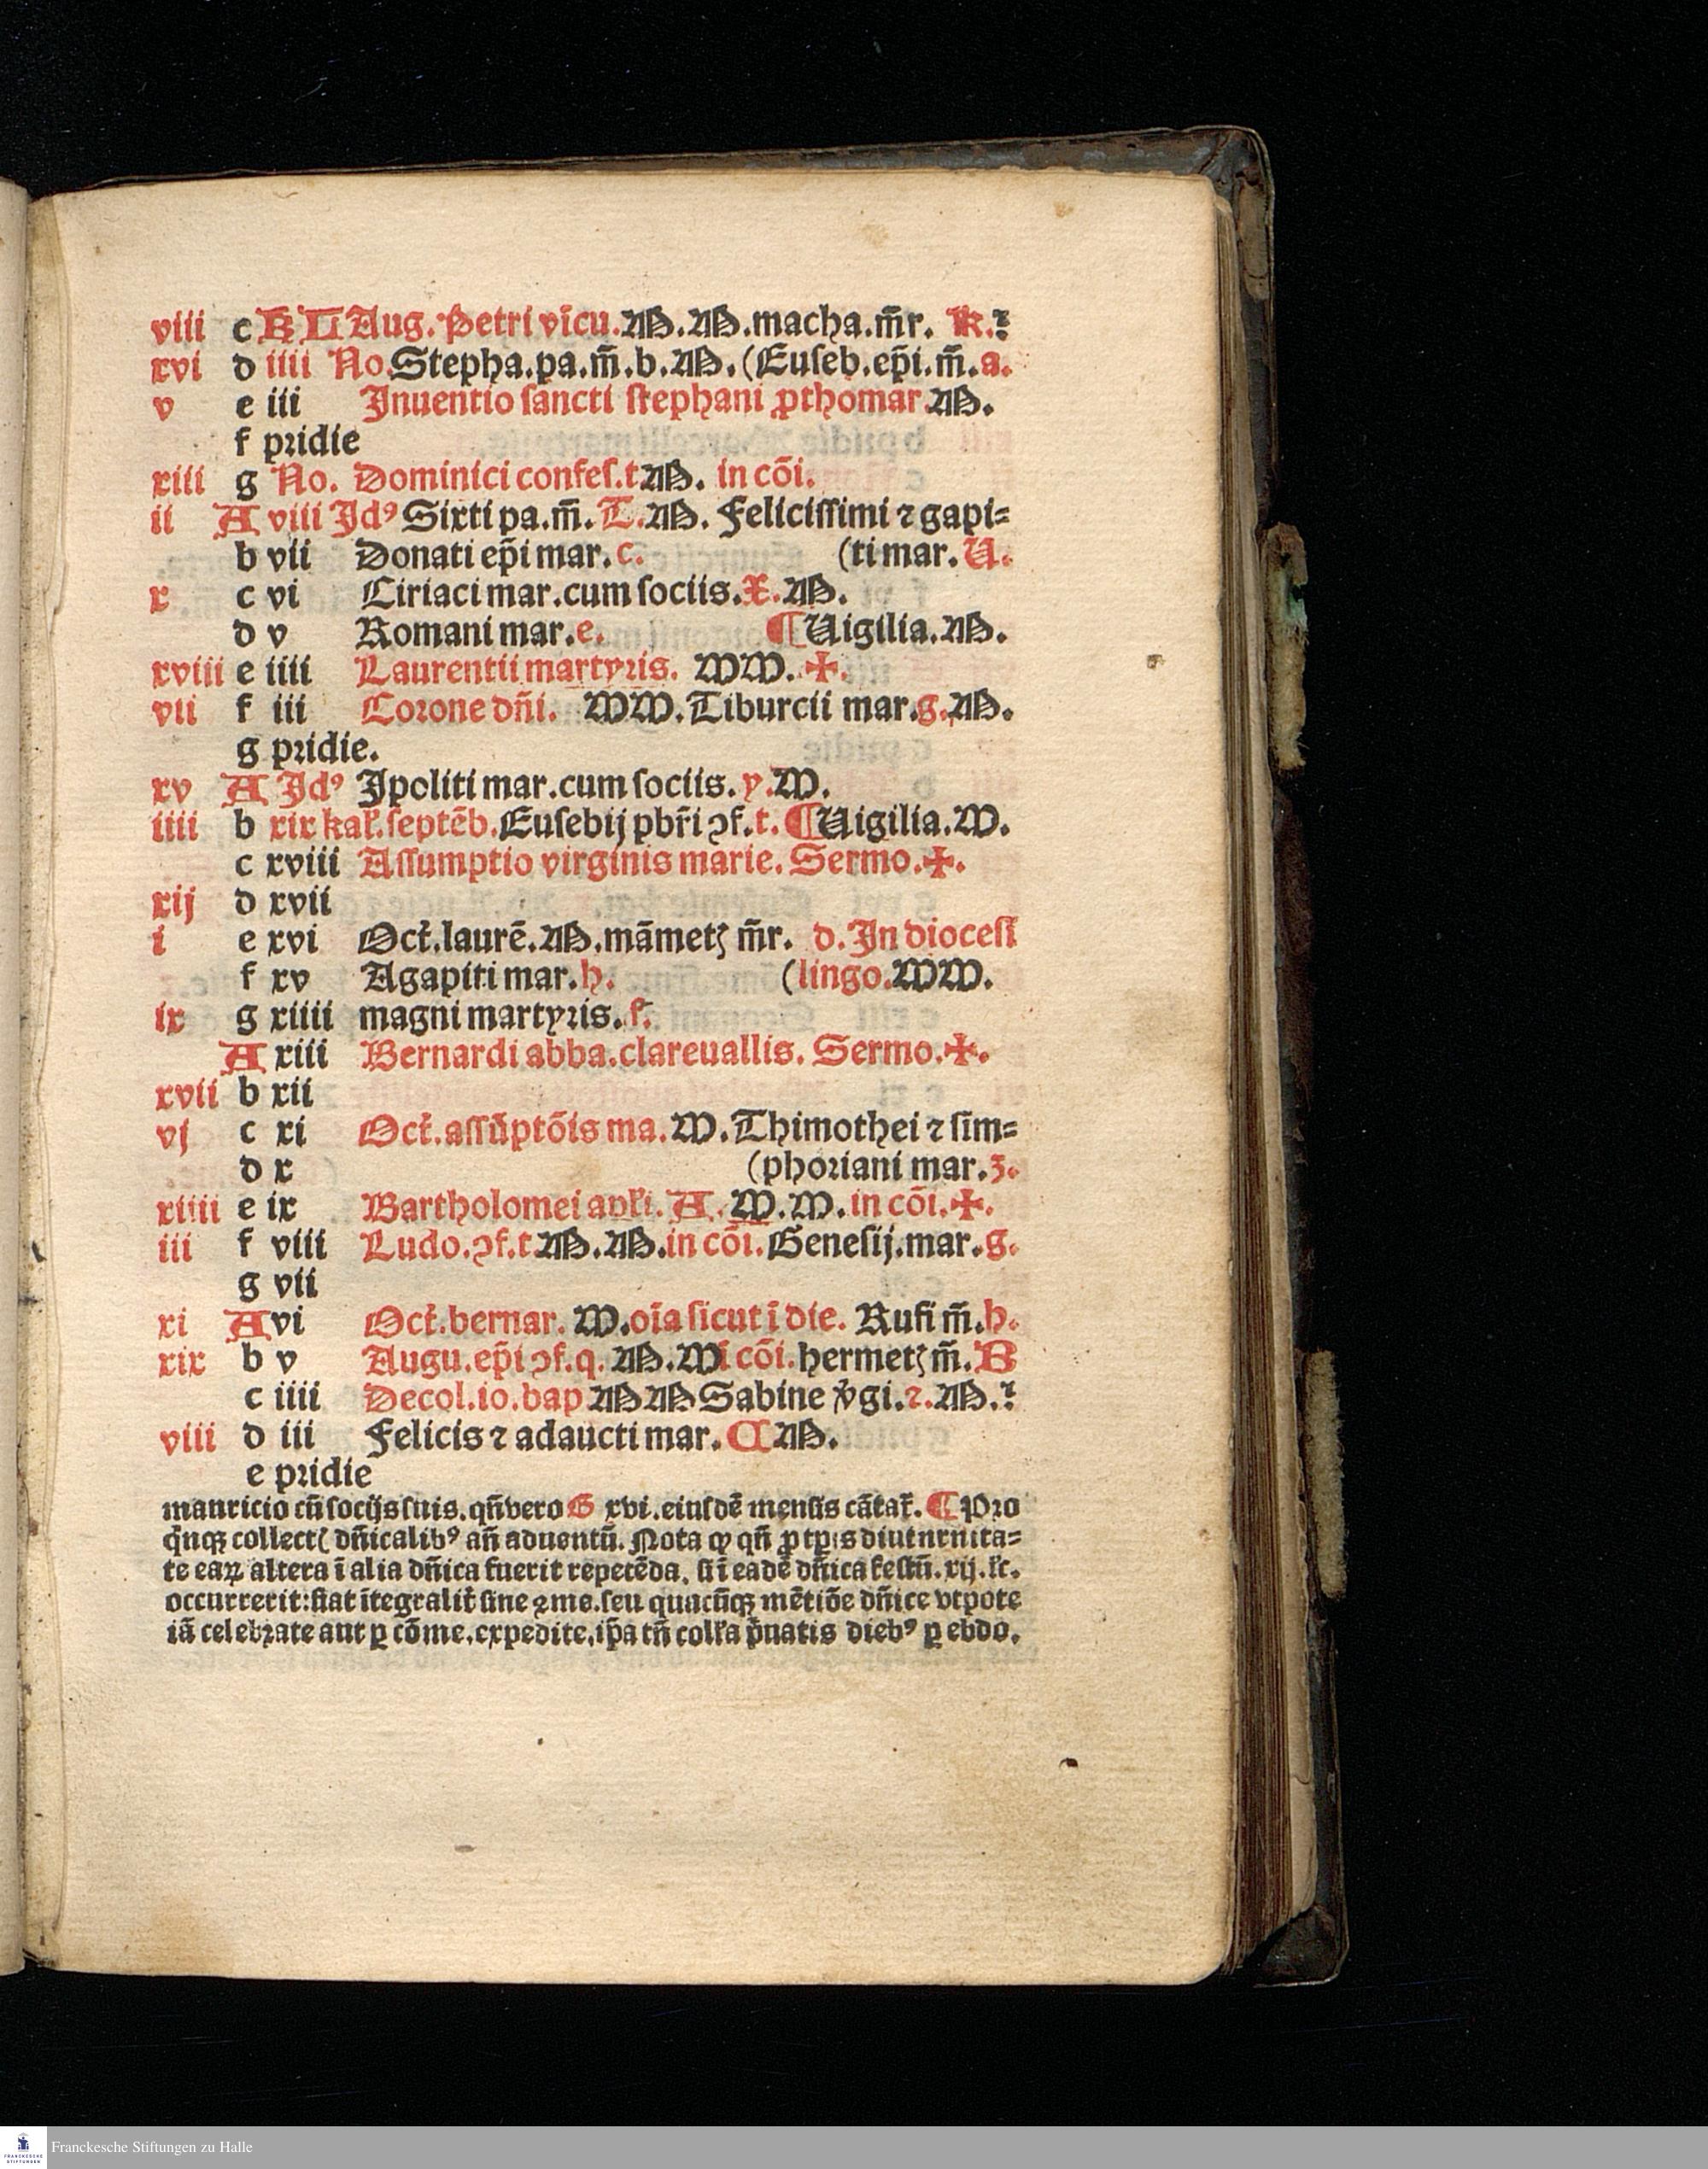 viii c KL Aug. Petri vīcu. M. M. macha. m̄r. k. ⁊
xvi d iiii No. Stepha. pa. m̄. b. M. (Euseb. ep̄i. m̄. a.
v e iii Inuentio sancti stephani ꝓthomar. M.
f pridie
xiii g No. Dominici confes. t M. in cōi.
ii A viii Idꝰ Sixti pa. m̄. T. M. Felicissimi ⁊ gapi=
b vii Donati ep̄i mar. c. (ti mar. U.
x c vi Ciriaci mar. cum sociis. X. M.
d v Romani mar. e. ¶ Uigilia. M.
xviii e iiii Laurentii martyris. MM. ✠.
vii f iii Corone dn̄i. MM. Tiburcii mar. g. M.
g pridie.
xv A Idꝰ Ipoliti mar. cum sociis. y. M.
iiii b xix kal. septēb. Eusebij pbr̄i ↄf. t. ¶ Uigilia. M.
c xviii Assumptio virginis marie. Sermo. ✠.
xij d xvii
i e xvi Oct. laurē. M. māmetꝫ m̄r. d. In diocesi
f xv Agapiti mar. h. (lingo. MM.
ix g xiiii magni martyris. f.
A xiii Bernardi abba. clareuallis. Sermo. ✠.
xvii b xii
vj c xi Oct. assūptōis ma. M. Thimothei ⁊ sim=
d x (phoriani mar. 3.
xiiii e ix Bartholomei apl̄i. A. M. M. in cōi. ✠.
iii f viii Ludo. ↄf. t. M. M. in cōi. Genesij. mar. g.
g vii
xi A vi Oct. bernar. M. oīa sicut ī die. Rufi m̄. h.
xix b v Augu. ep̄i ↄf. q. M. M ī cōi. hermetꝫ m̄. B
c iiii Decol. io. bap M M Sabine v̄gi. ⁊. M. ⁊
viii d iii Felicis ⁊ adaucti mar. ¶ M.
e pridie
mauricio cū socijs suis. qn̄ vero G xvi. eiusdē mensis cātat̄. ¶ Pro
q̄nqꝫ collectꝭ dn̄icalibꝰ an̄ aduentū. Nota ꝙ qn̄ ꝓ tp̄is diuturnita=
te eaꝝ altera ī alia dn̄ica fuerit repetēda, si ī eadē dn̄ica festū. xij. lc̄.
occurrerit: fiat ītegralit̄ sine ꝯme. seu quacūqꝫ mētiōe dn̄ice vtpote
iā celebrate aut ꝑ cōme. expedite, ip̄a tn̄ coll̄a p̄natis diebꝰ ꝑ ebdo.
Franckesche Stiftungen zu Halle